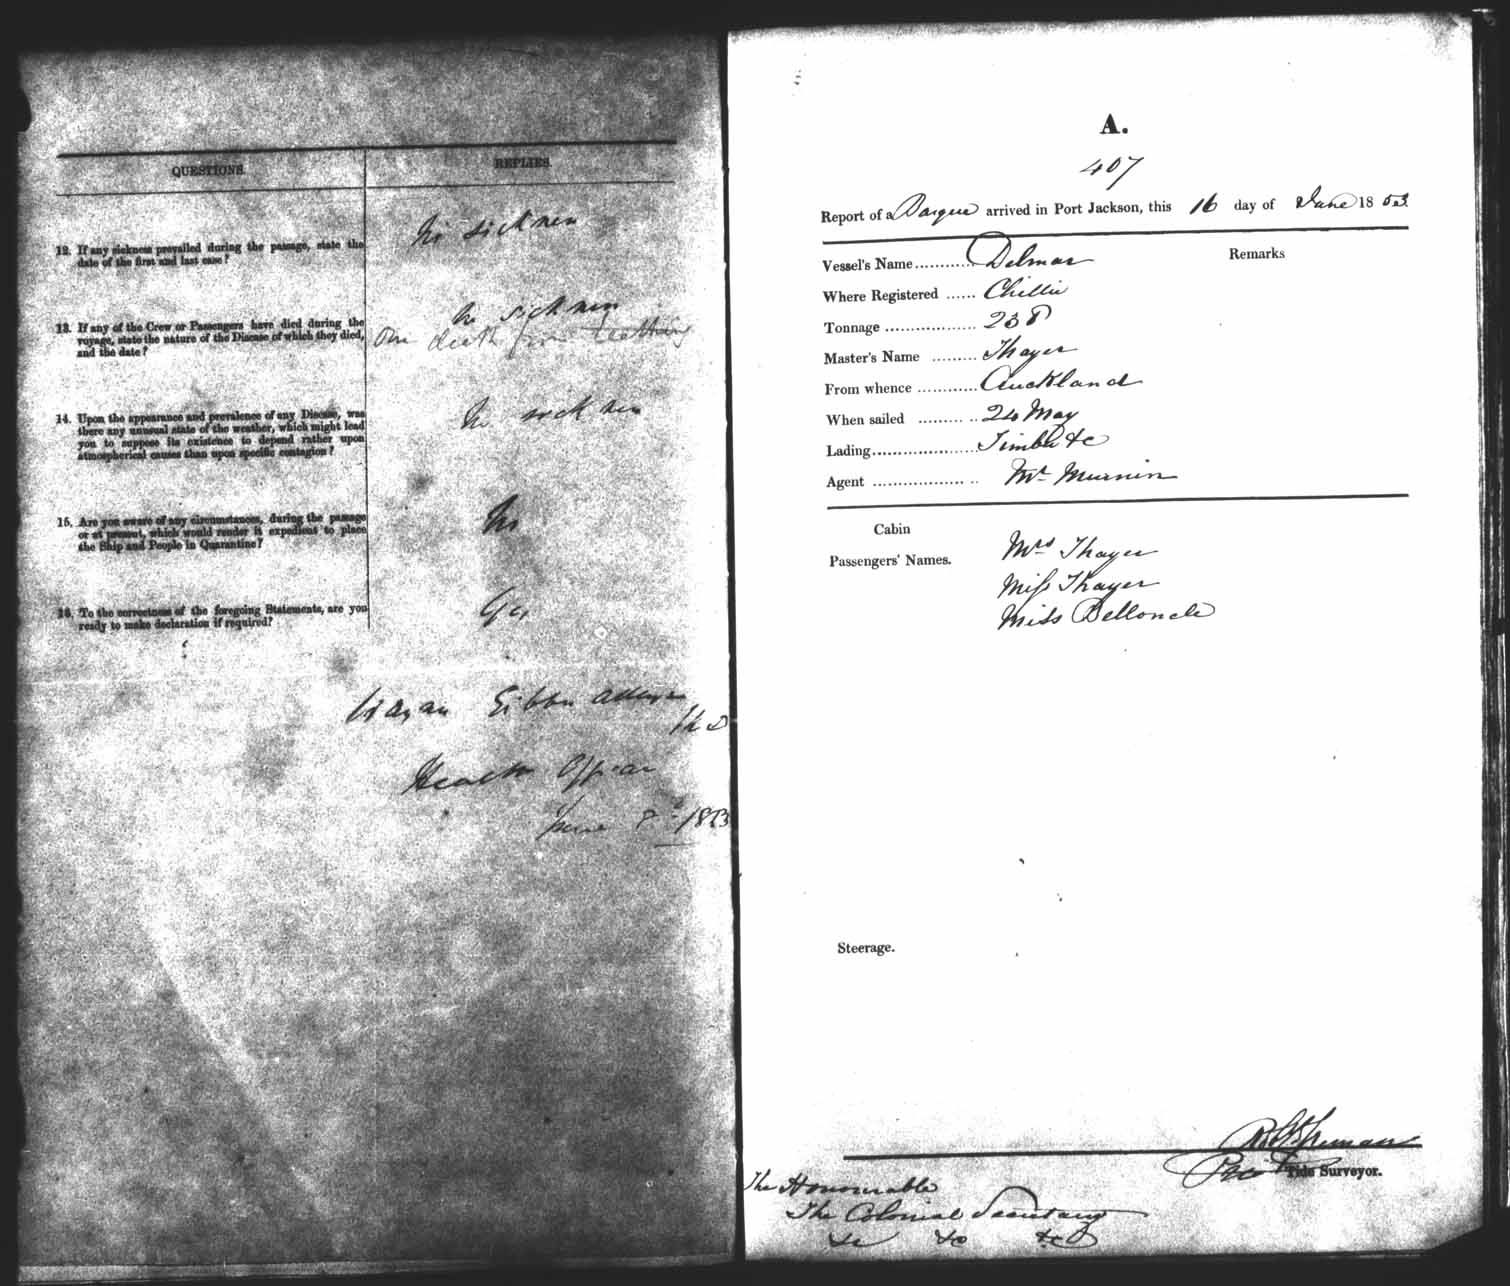 QUESTIONS.
REPLIES.
12. If any sickness prevailed during the passage, state the
date of the first and last case?
No sickness
13. If any of the Crew or Passengers have died during the
voyage, state the nature of the Disease of which they died,
and the date?
No sickness
One death from teething
14. Upon the appearance and prevalence of any Disease, was
there any unusual state of the weather, which might lead
you to suppose its existence to depend rather upon
atmospherical causes than upon specific contagion?
No sickness
15. Are you aware of any circumstances, during the passage
or at present, which would render it expedient to place
the Ship and People in Quarantine?
No
16. To the correctness of the foregoing Statements, are you
ready to make declaration if required?
Yes
Health Officer
June 8 1853
A.
407
Report of a Barque arrived in Port Jackson, this 16 day of June 1853
Remarks
Vessel's Name............ Delmar
Where Registered ...... Chillie
Tonnage .................. 238
Master's Name ......... Thayer
From whence ............ Auckland
When sailed ........... 24 May
Lading..................... Timber &c
Agent .................... Mr Murnin
Cabin
Passengers' Names.
Mrs Thayer
Miss Thayer
Miss Belloncle
Steerage.
Tide Surveyor.
The Honourable
The Colonial Secretary
&c &c &c